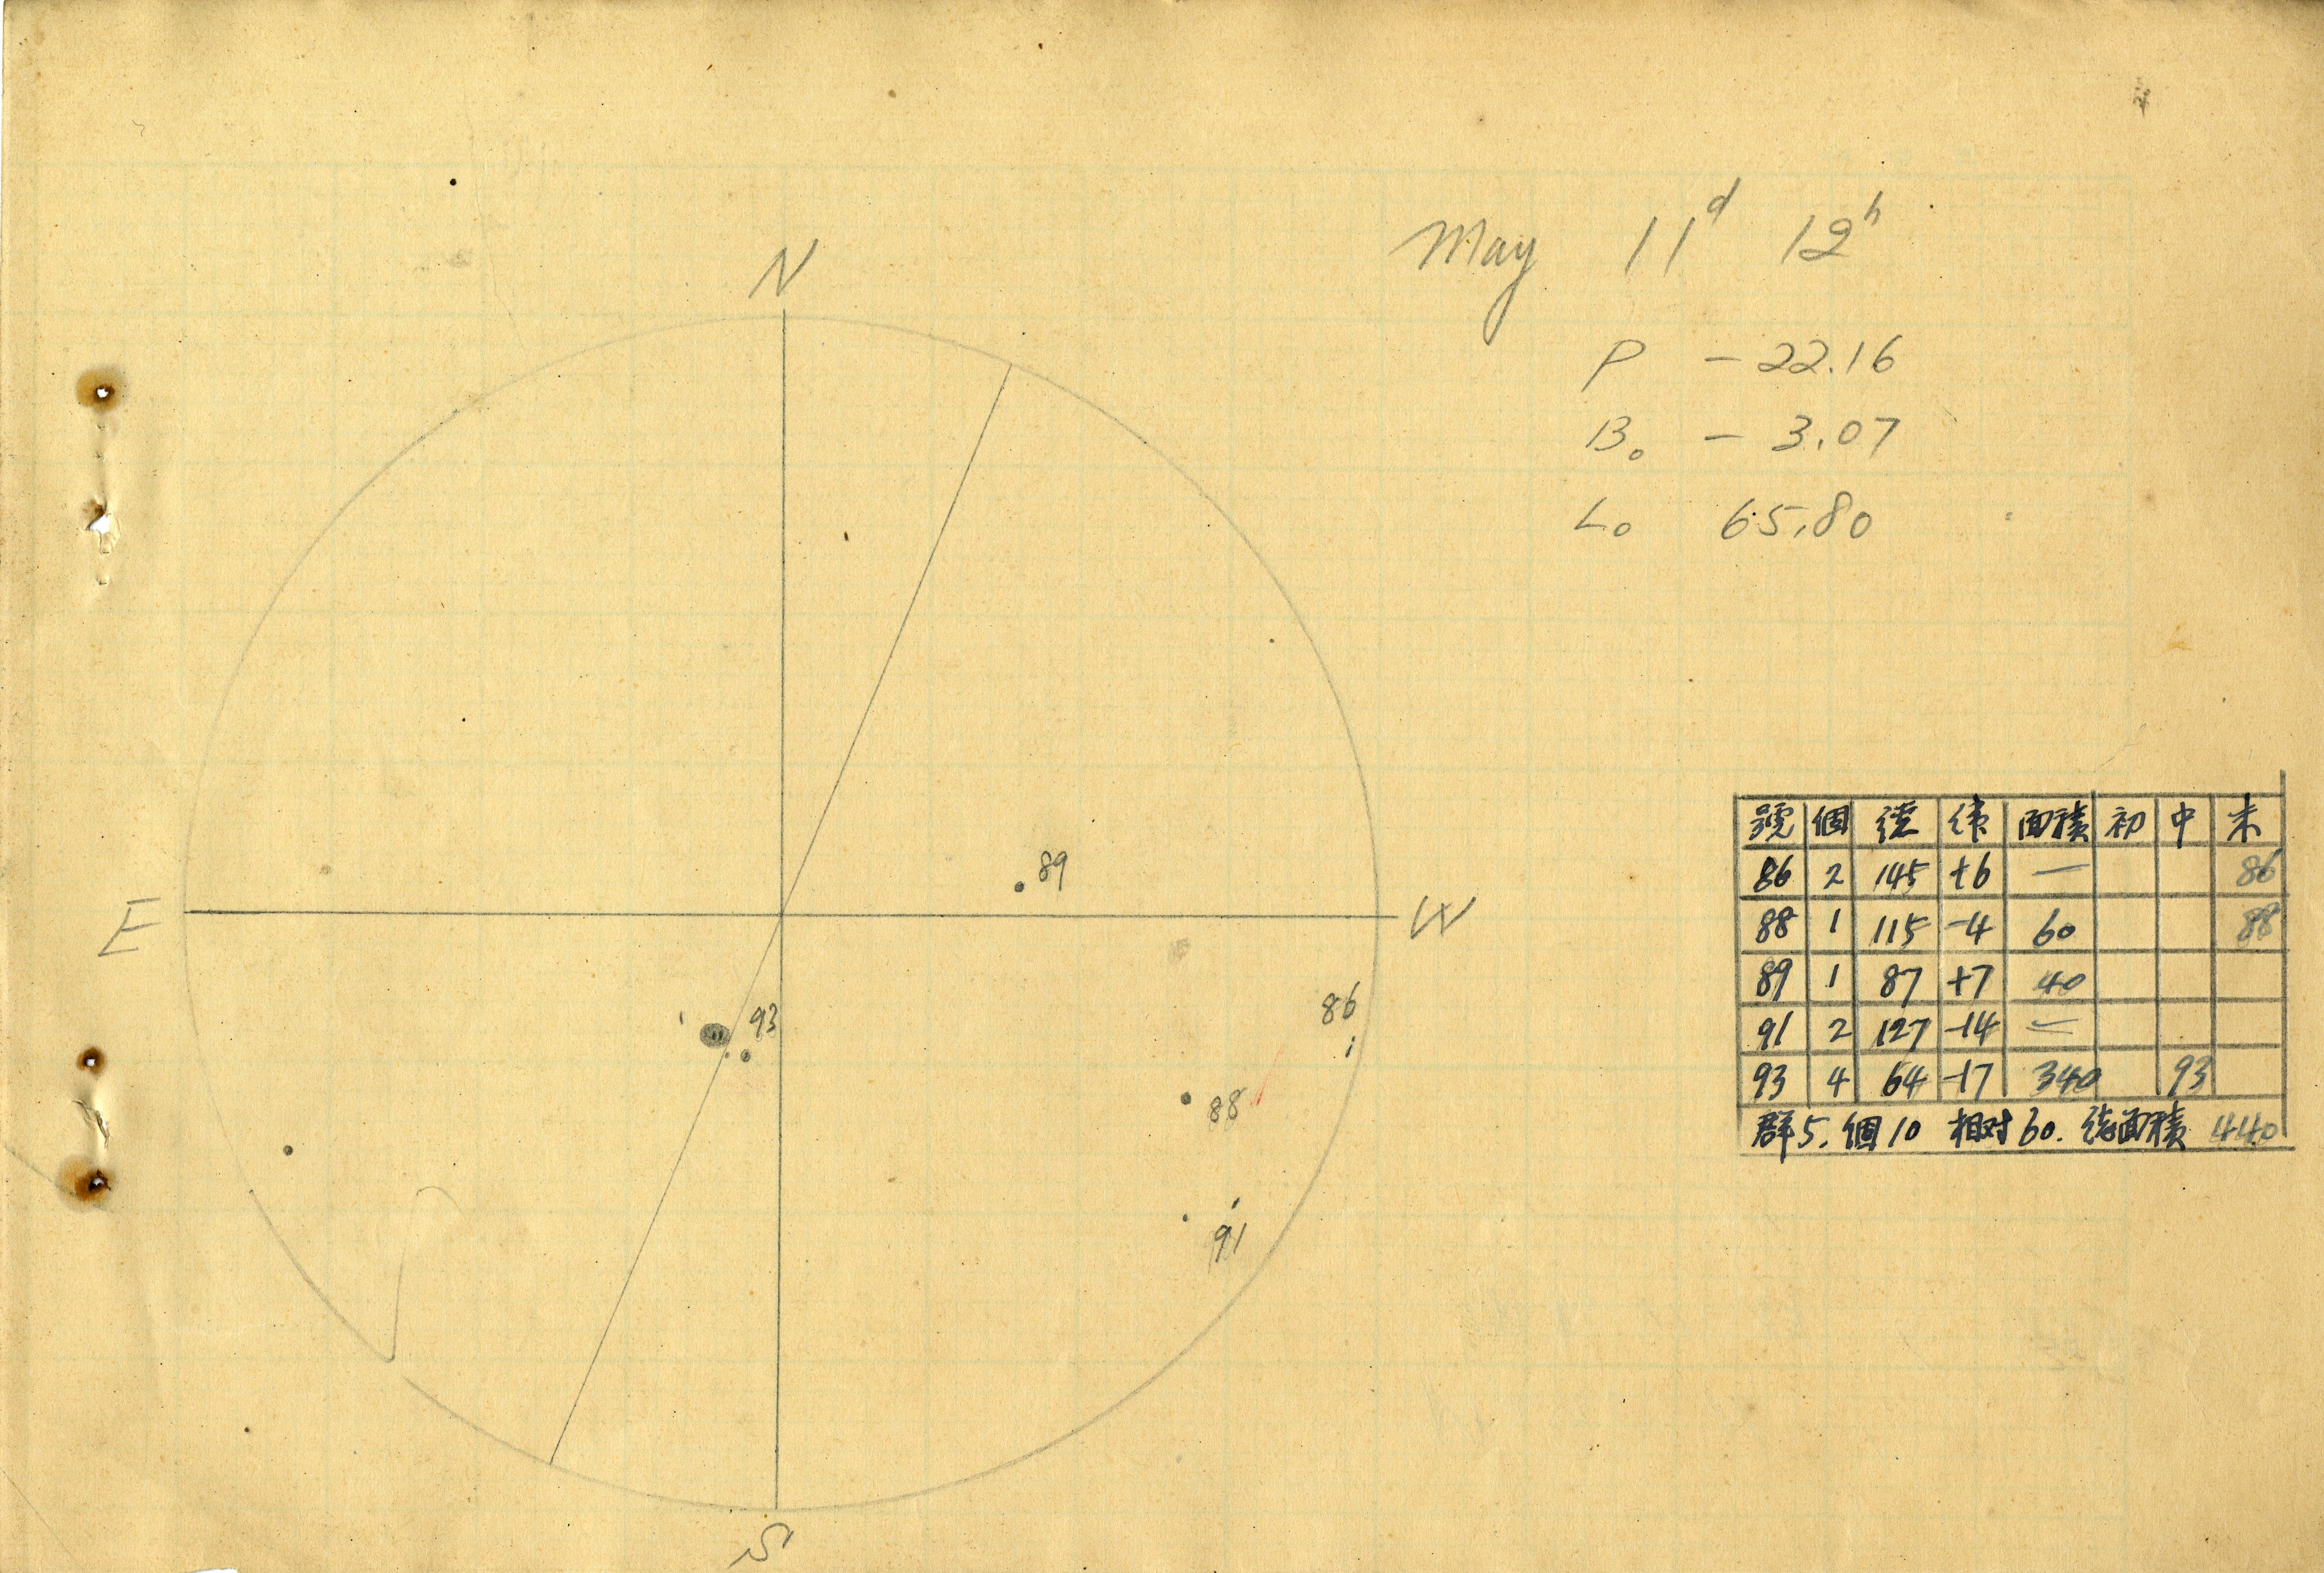 May 11d 12h
P - 22.16
B₀ - 3.07
L₀ 65.80
N
E
W
S
89
93
86
88
91
號 個 経 緯 面積 初 中 末
86 2 145 +6 — 86
88 1 115 -4 60 88
89 1 87 +7 40
91 2 127 -14 —
93 4 64 -17 340 93
群5. 個10 相対60. 総面積 440